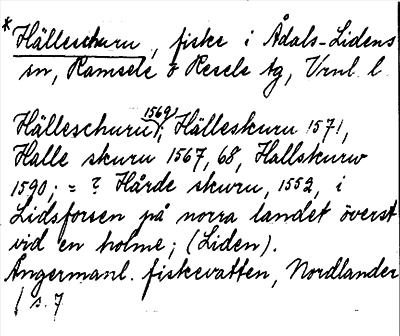 *Hälleschuru, fiske i Ådals-Lidens
sn, Ramsele o Resele tg, Vrnl. l.
Hälleschuru 1569, Hälleskuru 1571,
Halle skuru 1567, 68, Hallskurw
1590; = ? Hårde skuru, 1552, i
Lidsforsen på norra landet överst
vid en holme; (Liden).
Ångermanl. fiskevatten, Nordlander
s. 7